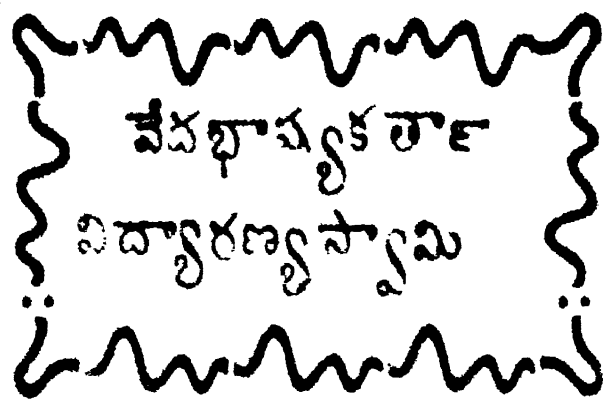 వేదభాష్యకర్తా
విద్యారణ్యస్వామి